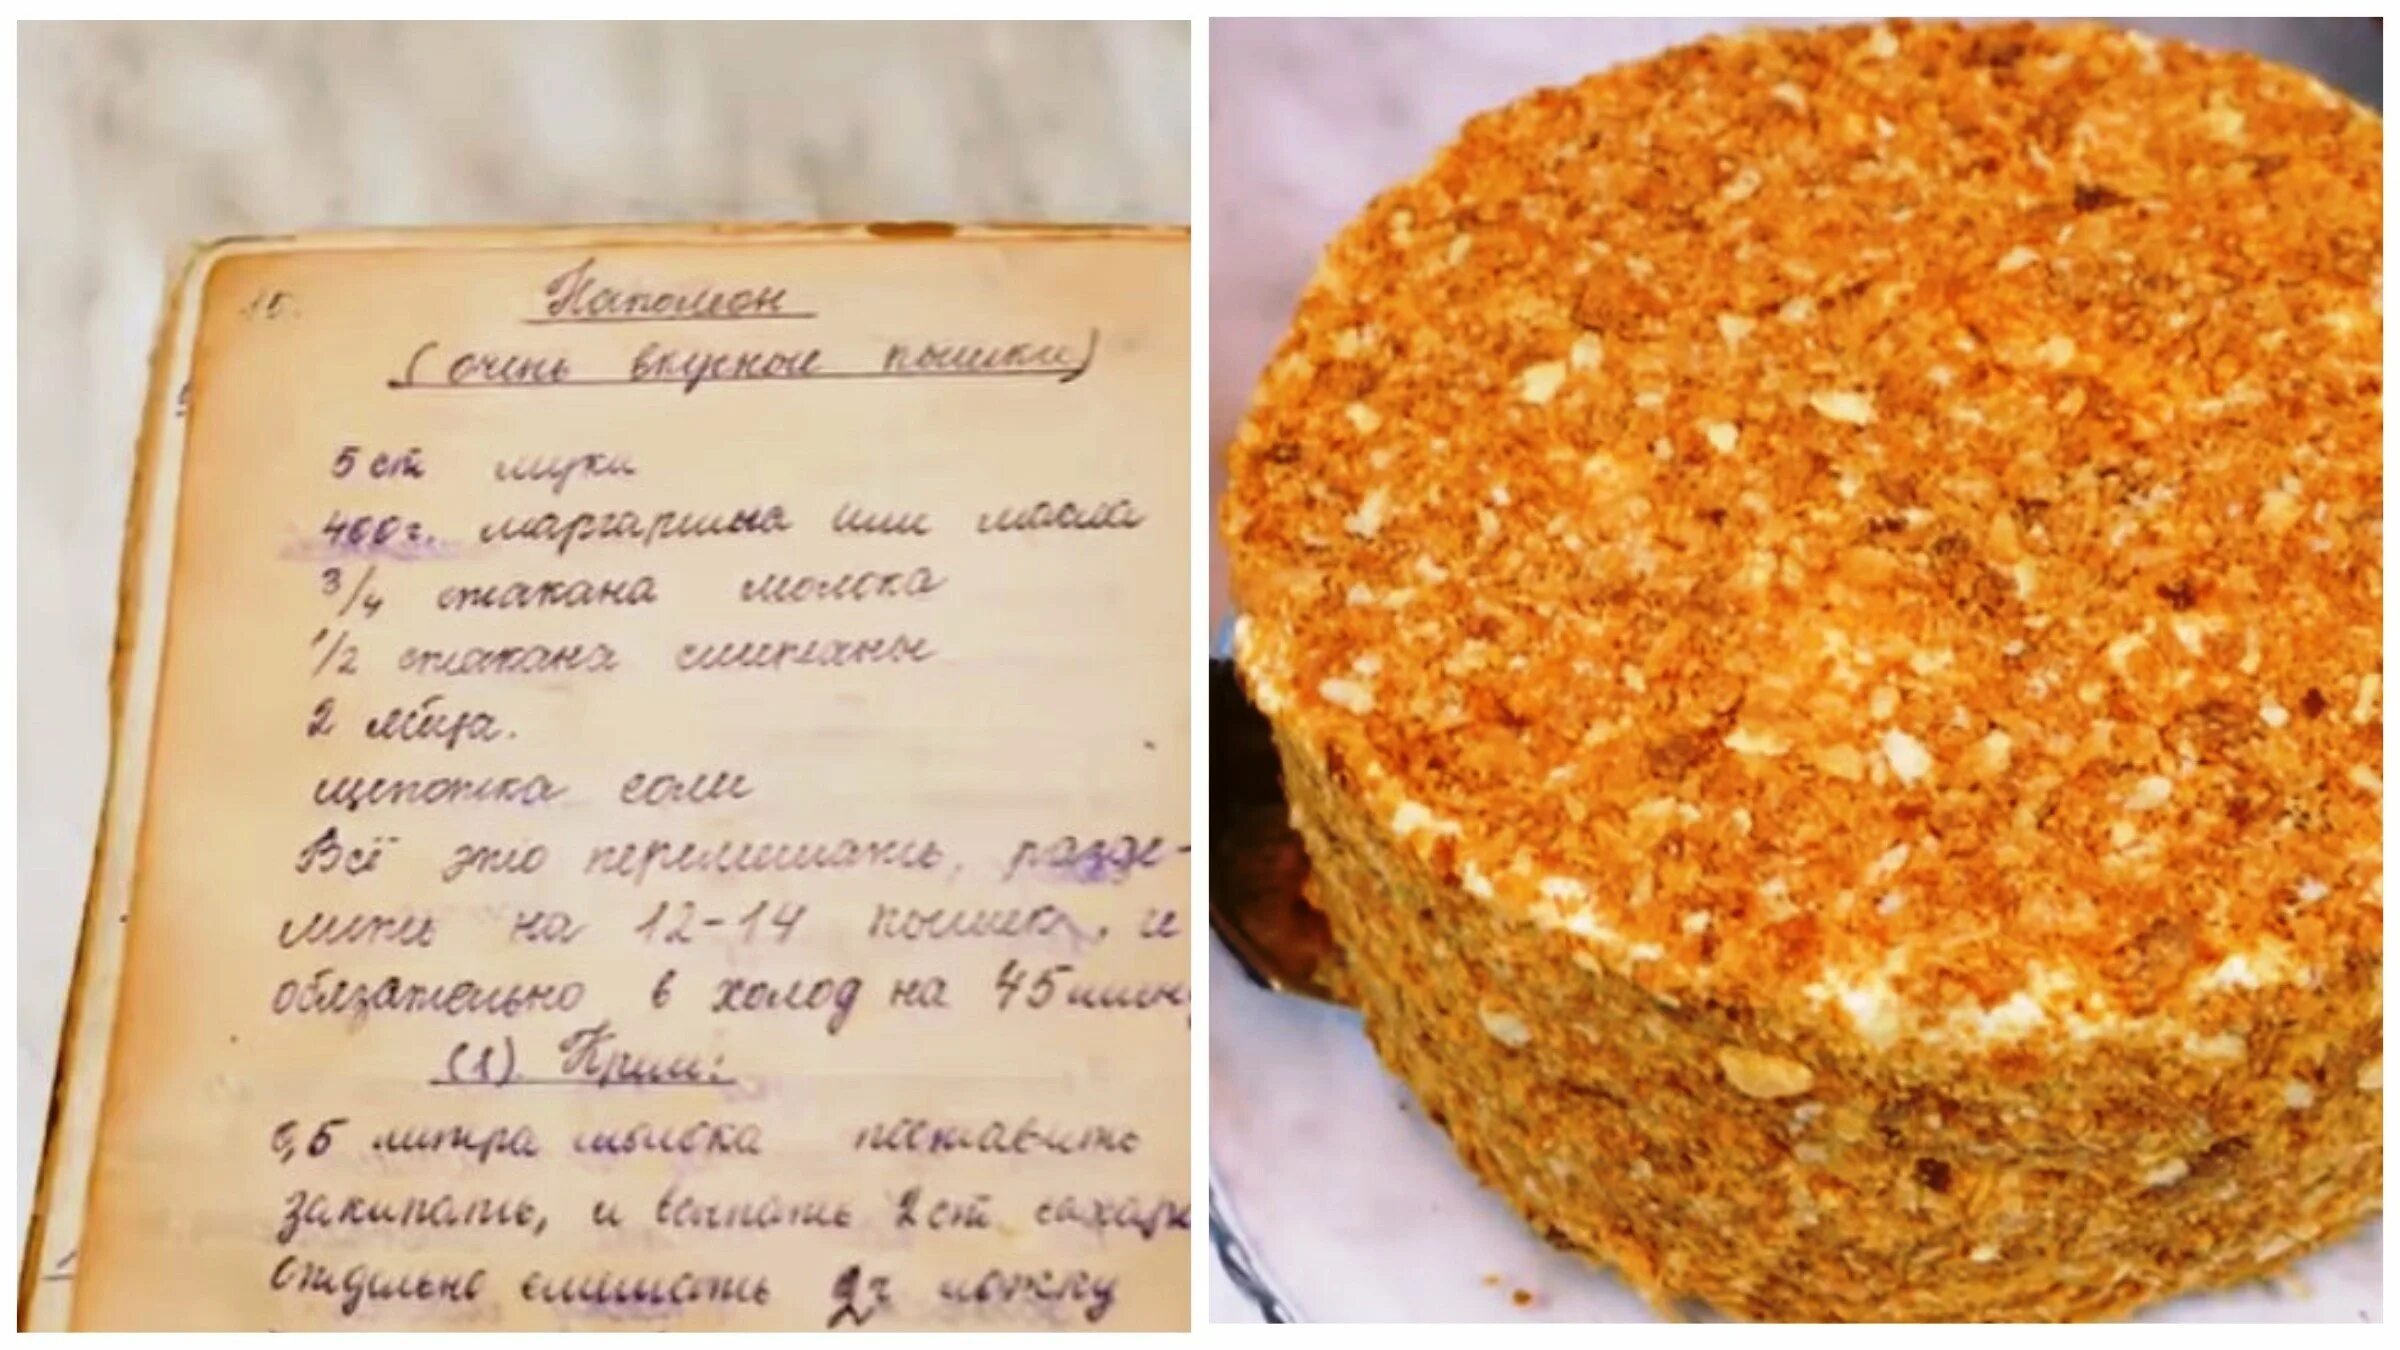 15.
Наполеон
(очень вкусные пышки)
5 ст муки
400 г. маргарина или масла
3/4 стакана молока
1/2 стакана сметаны
2 яйца.
щепотка соли
Всё это перемешать, разде-
лить на 12-14 пышек, и
обязательно в холод на 45 мин
(1). Крем:
0,5 литра молока поставить
закипать, и всыпать 2 ст. сахара
отдельно смешать 2 ч ложку